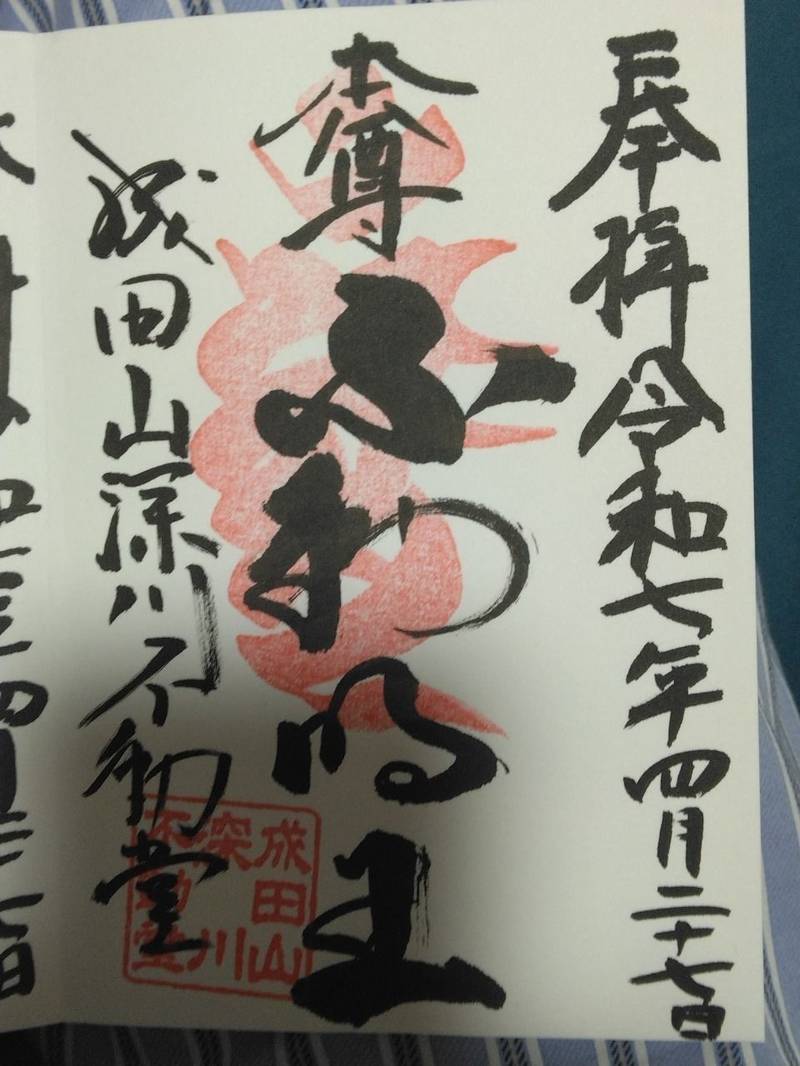 奉拝 令和七年四月二十七日
本尊 不動明王
成田山深川不動堂
成田山
深川
不動堂